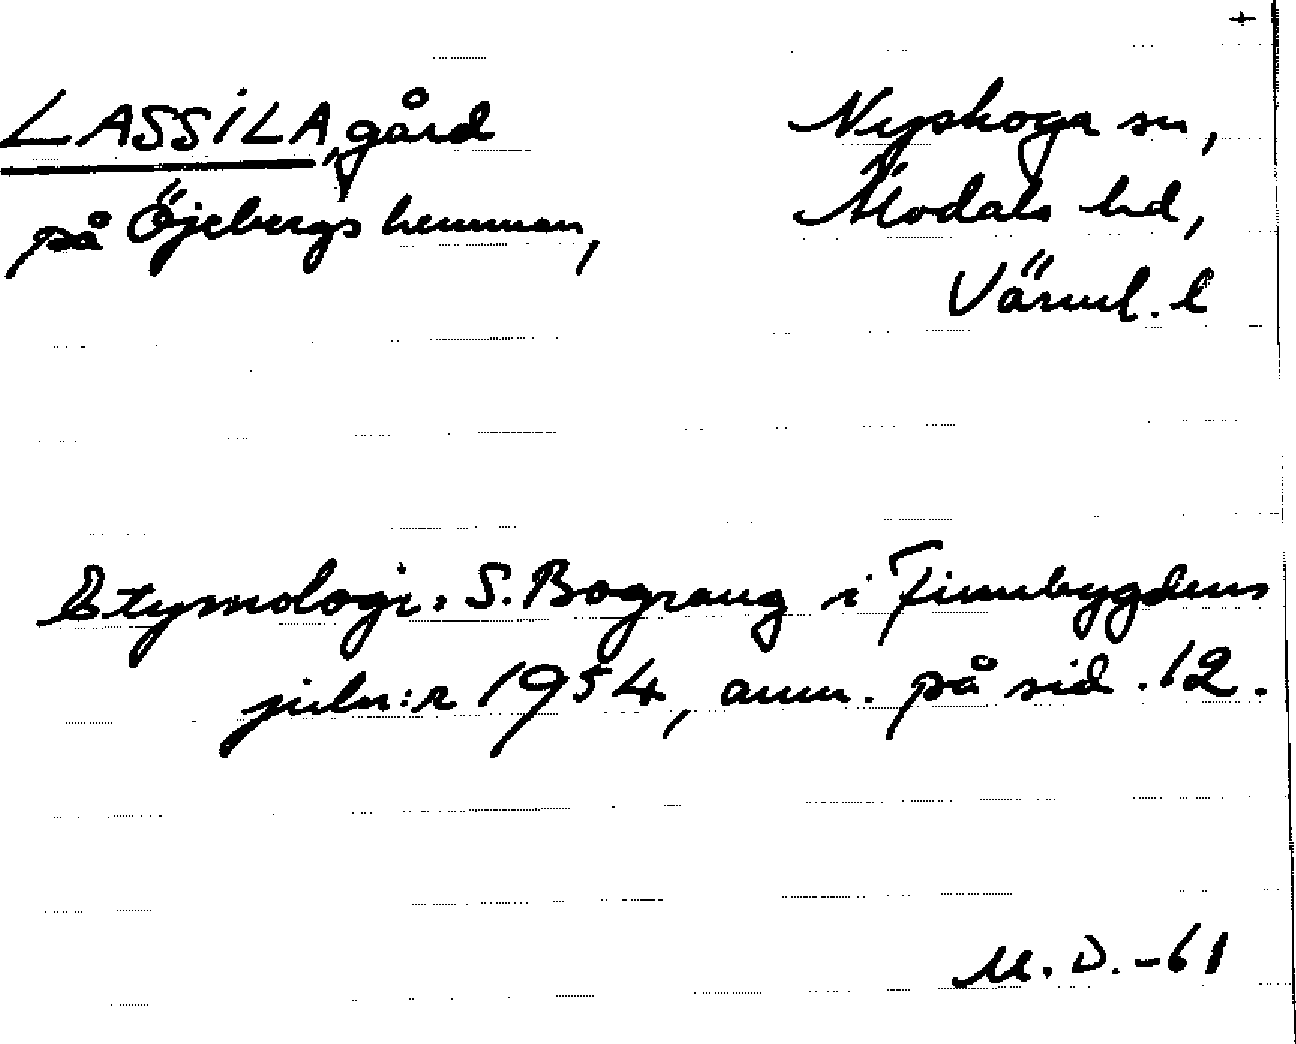 +
LASSILA, gård
på Öjebergs hemman,
Nyskoga sn,
Älvdals hd,
Värml. l
Etymologi. S. Bograng i Finnbygdens
julnr:r 1954, anm. på sid. 12.
M. D. -61